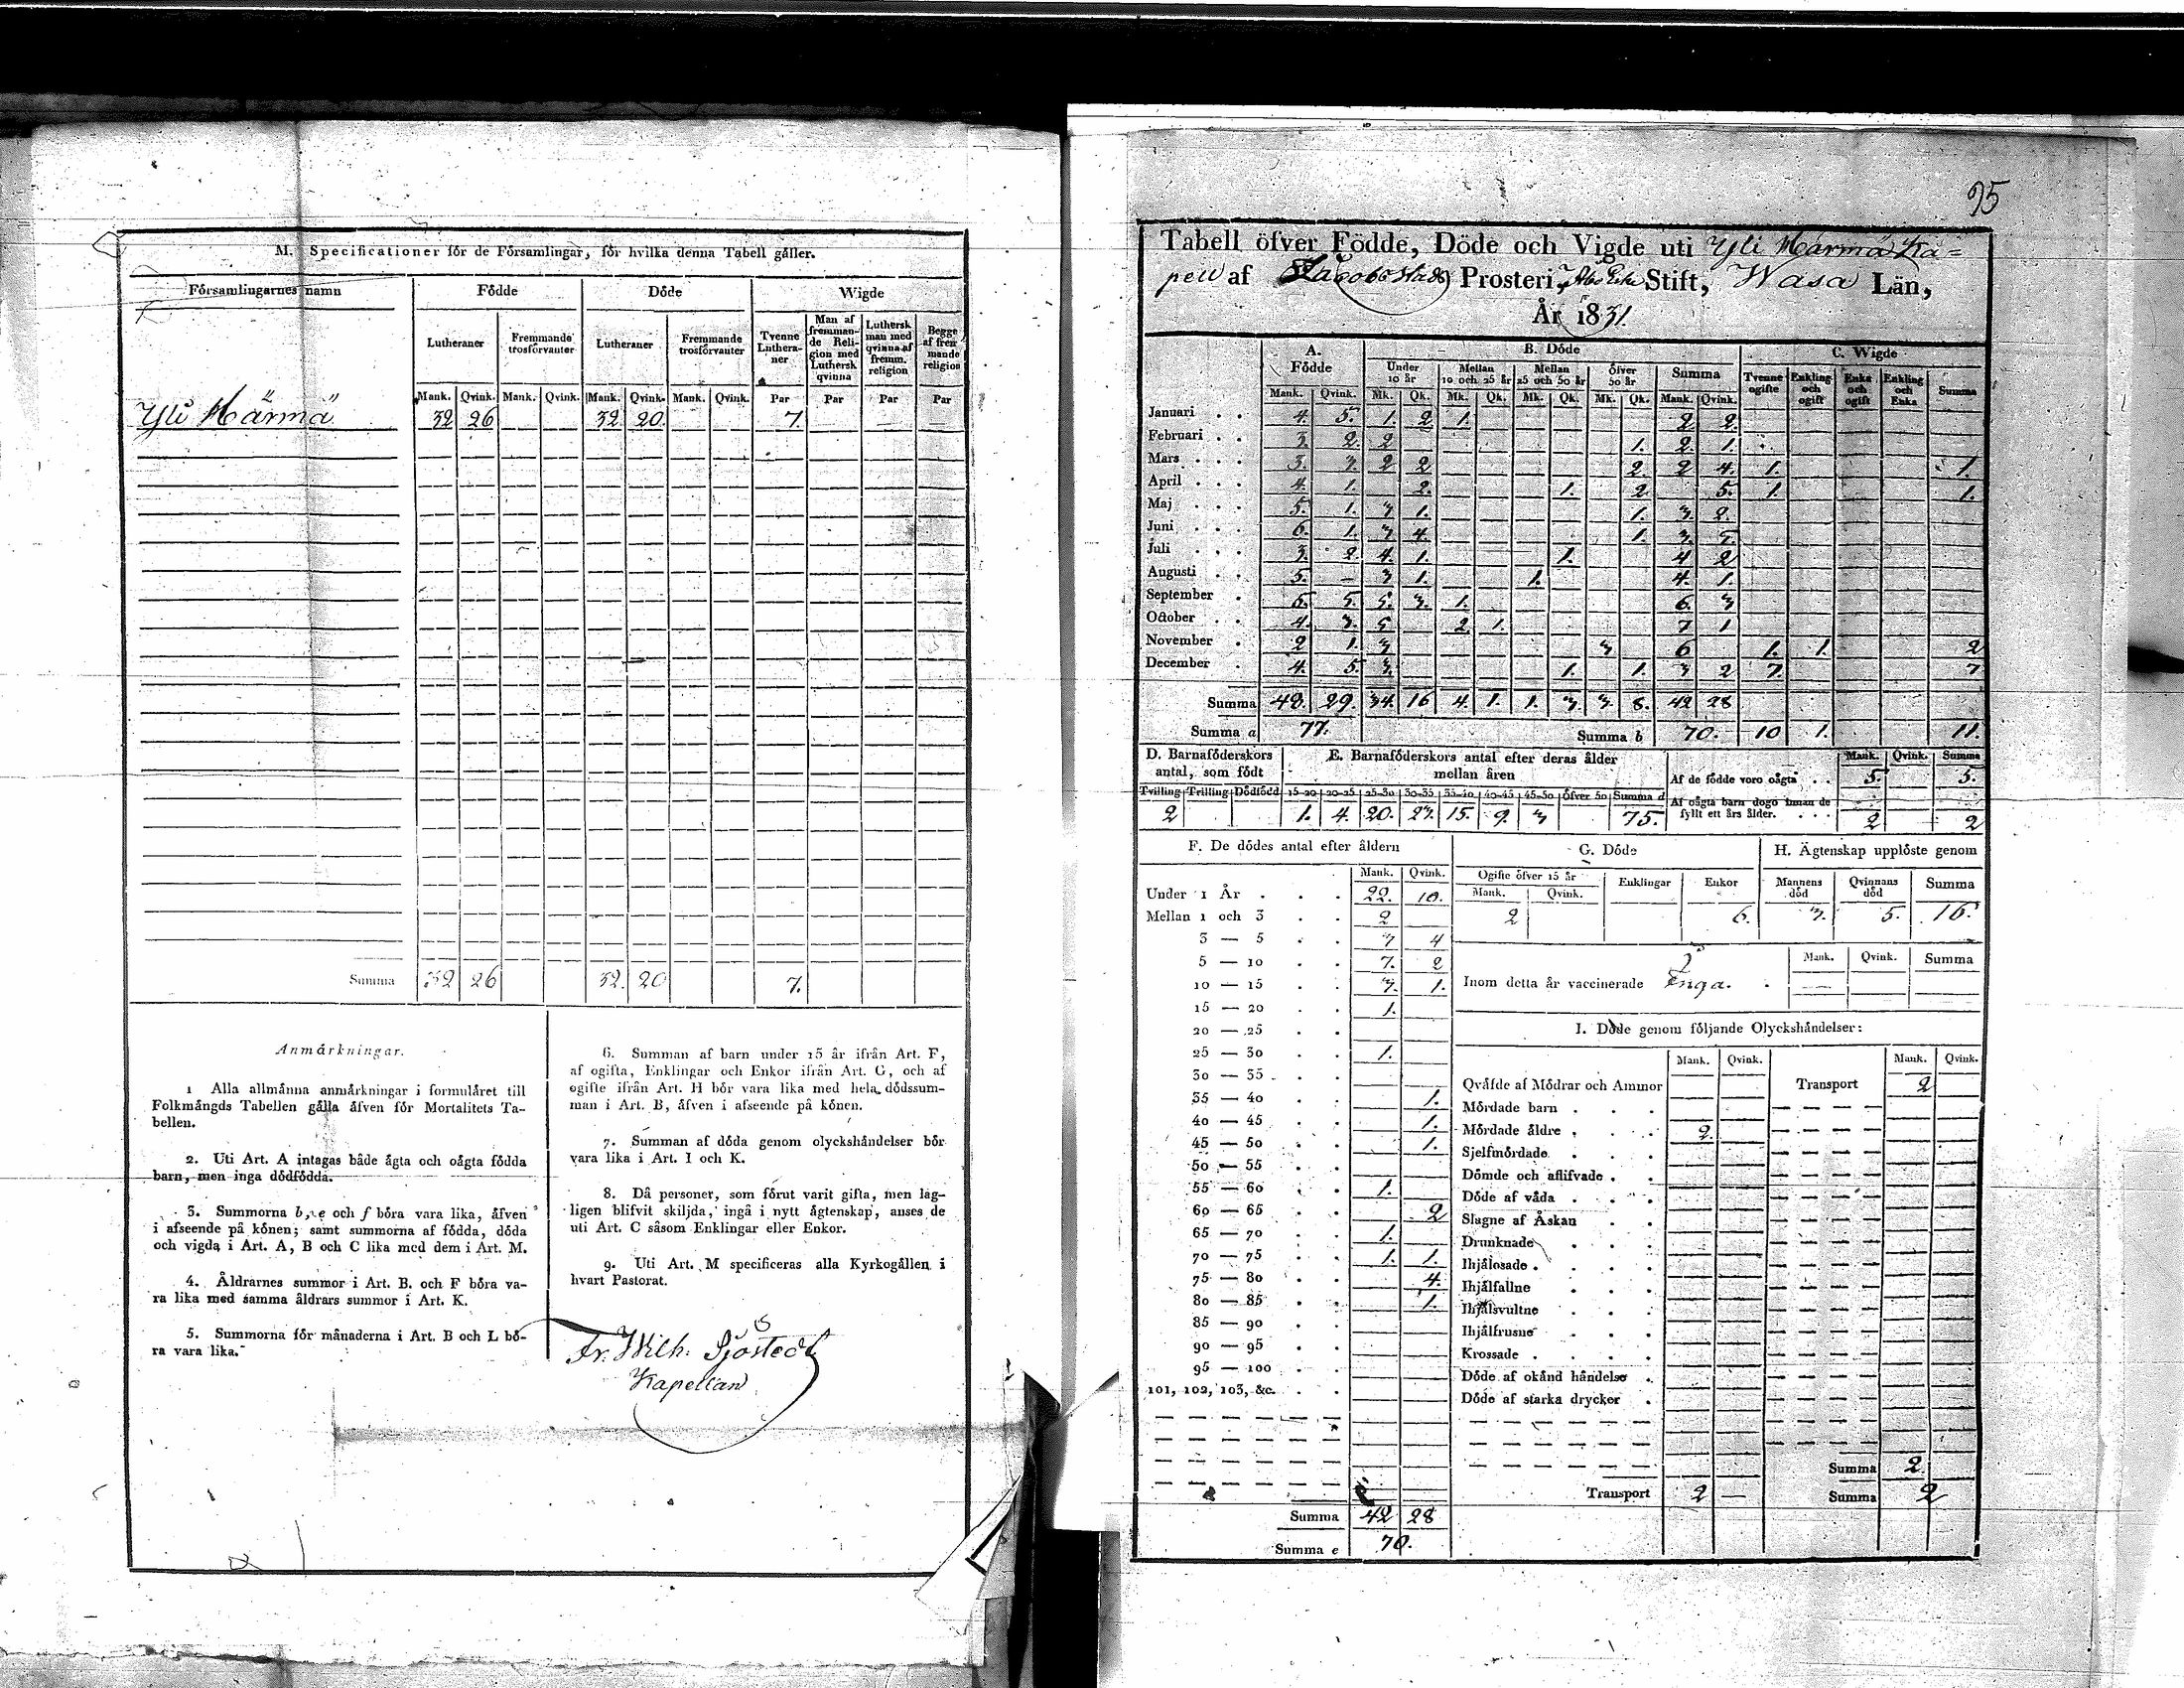 M. Specificationer för de Församlingar, för hvilka denna Tabell gäller.
Församlingarnes namn Födde Döde Wigde
Lutheraner Fremmande trosförvanter Lutheraner Fremmande trosförvanter Tvenne Lutheraner Man af fremmande Religion med Luthersk qvinna Luthersk man med qvinna af fremm. religion Begge af fremmande religion
Mank. Qvink. Mank. Qvink. Mank. Qvink. Mank. Qvink. Par Par Par Par
Yli Härmä 32 26 32 20. 7.
Summa 32 26 32. 20 7.
Anmärkningar.
1 Alla allmänna anmärkningar i formuläret till
Folkmängds Tabellen gälla äfven för Mortalitets Ta-
bellen.
2. Uti Art. A intagas både ägta och oägta födda
barn, men inga dödfödda.
3. Summorna b, e och f böra vara lika, äfven
i afseende på könen; samt summorna af födda, döda
och vigda i Art. A, B och C lika med dem i Art. M.
4. Åldrarnes summor i Art. B. och F böra va-
ra lika med samma åldrars summor i Art. K.
5. Summorna för månaderna i Art. B och L bö-
ra vara lika.
6. Summan af barn under 15 år ifrån Art. F,
af ogifta, Enklingar och Enkor ifrån Art. G, och af
ogifte ifrån Art. H bör vara lika med hela dödssum-
man i Art. B, äfven i afseende på könen.
7. Summan af döda genom olyckshändelser bör
vara lika i Art. I och K.
8. Då personer, som förut varit gifta, men lag-
ligen blifvit skiljda, ingå i nytt ägtenskap, anses de
uti Art. C såsom Enklingar eller Enkor.
9. Uti Art. M specificeras alla Kyrkogällen i
hvart Pastorat.
Fr. Wilh. Sjöstedt
Kapellan
95
Tabell öfver Födde, Döde och Vigde uti Yli Härmä Ka=
pell af Jacobstads Prosteri, Stift, Wasa Län,
År 1831.
A. Födde B. Döde C. Wigde
Under 10 år Mellan 10 och 25 år Mellan 25 och 50 år Öfver 50 år Summa Tvenne ogifte Enkling och ogift Enka och ogift Enkling och Enka Summa
Mank. Qvink. Mk. Qk. Mk. Qk. Mk. Qk. Mk. Qk. Mank. Qvink.
Januari 4. 5. 1. 2 1. 2 2.
Februari 3. 2. 2 1. 2. 1.
Mars 3. 3. 2 2 2. 2 4. 1. 1.
April 4. 1. 2. 1. 2. 5. 1. 1.
Maj 5. 1. 3 1. 1. 3. 2.
Juni 6. 1. 3 4. 1. 3. 5.
Juli 3. 2. 4. 1. 1. 4 2
Augusti 5. — 3 1. 1. 4. 1.
September 5. 5. 5. 3. 1. 6. 3
October 4. 3. 5 2. 1. 7 1
November 2 1. 3 3 6 1. 1. 2
December 4. 5. 3. 1. 1. 3 2 7. 7
Summa 48. 29. 34. 16 4. 1. 1. 3. 3. 8. 42 28
Summa a 77. Summa b 70. 10 1. 11.
D. Barnaföderskors antal, som födt
E. Barnaföderskors antal efter deras ålder mellan åren
Tvilling Trilling Dödföd 15-20 20-25 25-30 30-35 35-40 40-45 45-50 Öfver 50 Summa d
2 1. 4. 20. 23. 15. 9. 3 75.
Mank. Qvink. Summa
Af de födde voro oägta 5. 5.
Af oägta barn dogo innan de
fyllt ett års ålder. 2 2
F. De dödes antal efter åldern
Mank. Qvink.
Under 1 År 22. 10.
Mellan 1 och 3 2
3 — 5 3 4
5 — 10 7. 2
10 — 15 3. 1.
15 — 20 1.
20 — 25
25 — 30 1.
30 — 35
35 — 40 1.
40 — 45 1.
45 — 50 1.
50 — 55
55 — 60 1.
60 — 65 2
65 — 70 1.
70 — 75 1. 1.
75 — 80 4.
80 — 85 1.
85 — 90
90 — 95
95 — 100
101, 102, 103, &c.
Summa 42 28
Summa e 70.
G. Döde
Ogifte öfver 15 år Enklingar Enkor
Mank. Qvink.
2 6.
H. Ägtenskap upplöste genom
Mannens död Qvinnans död Summa
5. 16.
Inom detta år vaccinerade Inga.
Mank. Qvink. Summa
I. Döde genom följande Olyckshändelser:
Mank. Qvink. Mank. Qvink.
Qväfde af Mödrar och Ammor Transport 2
Mördade barn
Mördade äldre 2.
Sjelfmördade
Dömde och aflifvade
Döde af våda
Slagne af Åskan
Drunknade
Ihjälosade
Ihjälfallne
Ihjälsvultne
Ihjälfrusne
Krossade
Döde af okänd händelse
Döde af starka drycker
Summa 2
Transport 2 — Summa 2